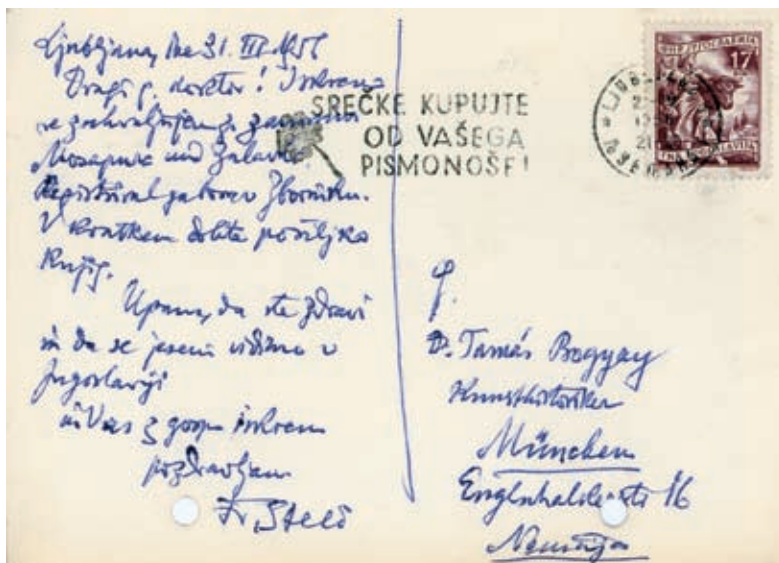 Ljubljana, dne 31. III 1956
Dragi g. doktor! Iskreno
se zahvaljujem za zanimivo
Mosapurc und Zalavár.
Registriral ga bom v Zborniku.
V kratkem dobite pošiljko
knjig.
Upam, da ste zdravi
in da se jeseni vidimo v
Jugoslaviji
in Vas z gospo iskreno
pozdravljam
Fr. Stelè
SREČKE KUPUJTE
OD VAŠEGA
PISMONOŠE!
17
LJUBLJANA
G.
D. Tamás Bogyay
Kunsthistoriker
München
16
Nemčija